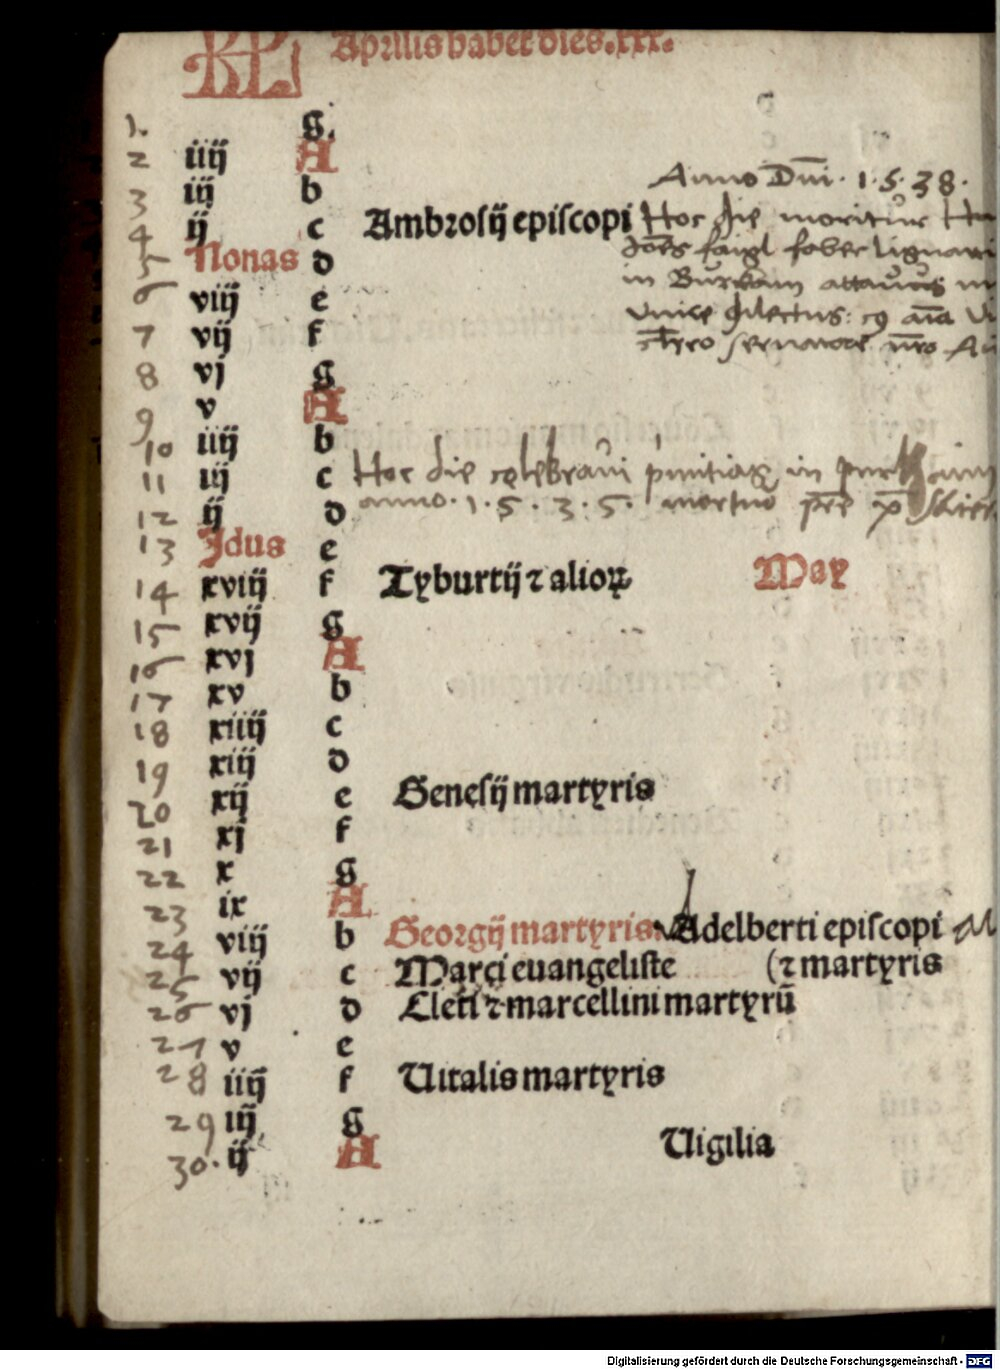 KL Aprilis habet dies.xxx.
1. g.
2 iiij A
3 iij b
4 ij c Ambrosij episcopi
Anno Dni. 1.5.38.
Hoc die moritur
faber lignari
in attavus
vnice dilectus:
5 Nonas d
6 viij e
7 vij f
8 vj g
9 v A
10 iiij b
11 iij c Hoc die celebravi primitias in
12 ij d anno.1.5.3.5. mortuo
13 Jdus e
14 xviij f Tyburtij ⁊ alioꝝ May
15 xvij g
16 xvj A
17 xv b
18 xiiij c
19 xiij d
20 xij e Genesij martyris
21 xj f
22 x g
23 ix A
24 viij b Georgij martyris Adelberti episcopi
25 vij c Marci euangeliste (⁊ martyris
26 vj d Cleti ⁊ marcellini martyrū
27 v e
28 iiij f Uitalis martyris
29 iij g
30. ij A Uigilia
Digitalisierung gefördert durch die Deutsche Forschungsgemeinschaft - DFG